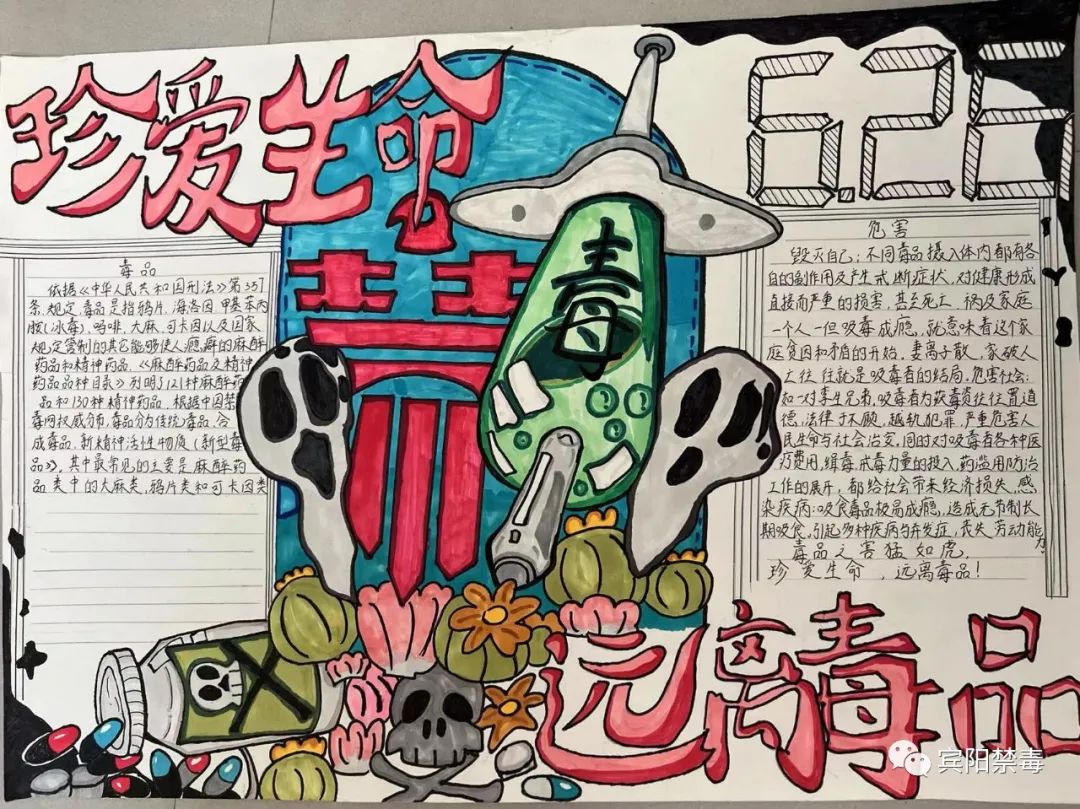 珍爱生命
6.26
毒
毒品
依据《中华人民共和国刑法》第357
条规定,毒品是指鸦片,海洛因,甲基苯丙
胺(冰毒),吗啡,大麻,可卡因以及国家
规定管制的其它能够使人瘾癖的麻醉
药品和精神药品,《麻醉药品及精神
药品品种目录》列明了121种麻醉药
品和130种精神药品。根据中国禁
毒网权威分布,毒品分为传统毒品、合
成毒品、新精神活性物质(新型毒
品》,其中最常见的主要是麻醉药
品类中的大麻类,鸦片类和可卡因类
危害
毁灭自己:不同毒品摄入体内都有各
自的副作用及产生戒断症状,对健康形成
直接而严重的损害,甚至死亡,祸及家庭
一个人一但吸毒成瘾,就意味着这个家
庭贫困和矛盾的开始,妻离子散,家破人
亡往往就是吸毒者的结局。危害社会:
和一对孪生兄弟,吸毒者为获毒资往往置道
德,法律于不顾,越轨犯罪,严重危害人
民生命与社会治安,同时对吸毒者各种医
疗费用,缉毒,戒毒力量的投入,药滥用防治
工作的展开,都给社会带来经济损失,感
染疾病:吸食毒品极易成瘾,造成无节制长
期吸食,引起多种疾病与并发症,丧失劳动能力
毒品之害猛如虎,
珍爱生命,远离毒品!
远离毒品
宾阳禁毒